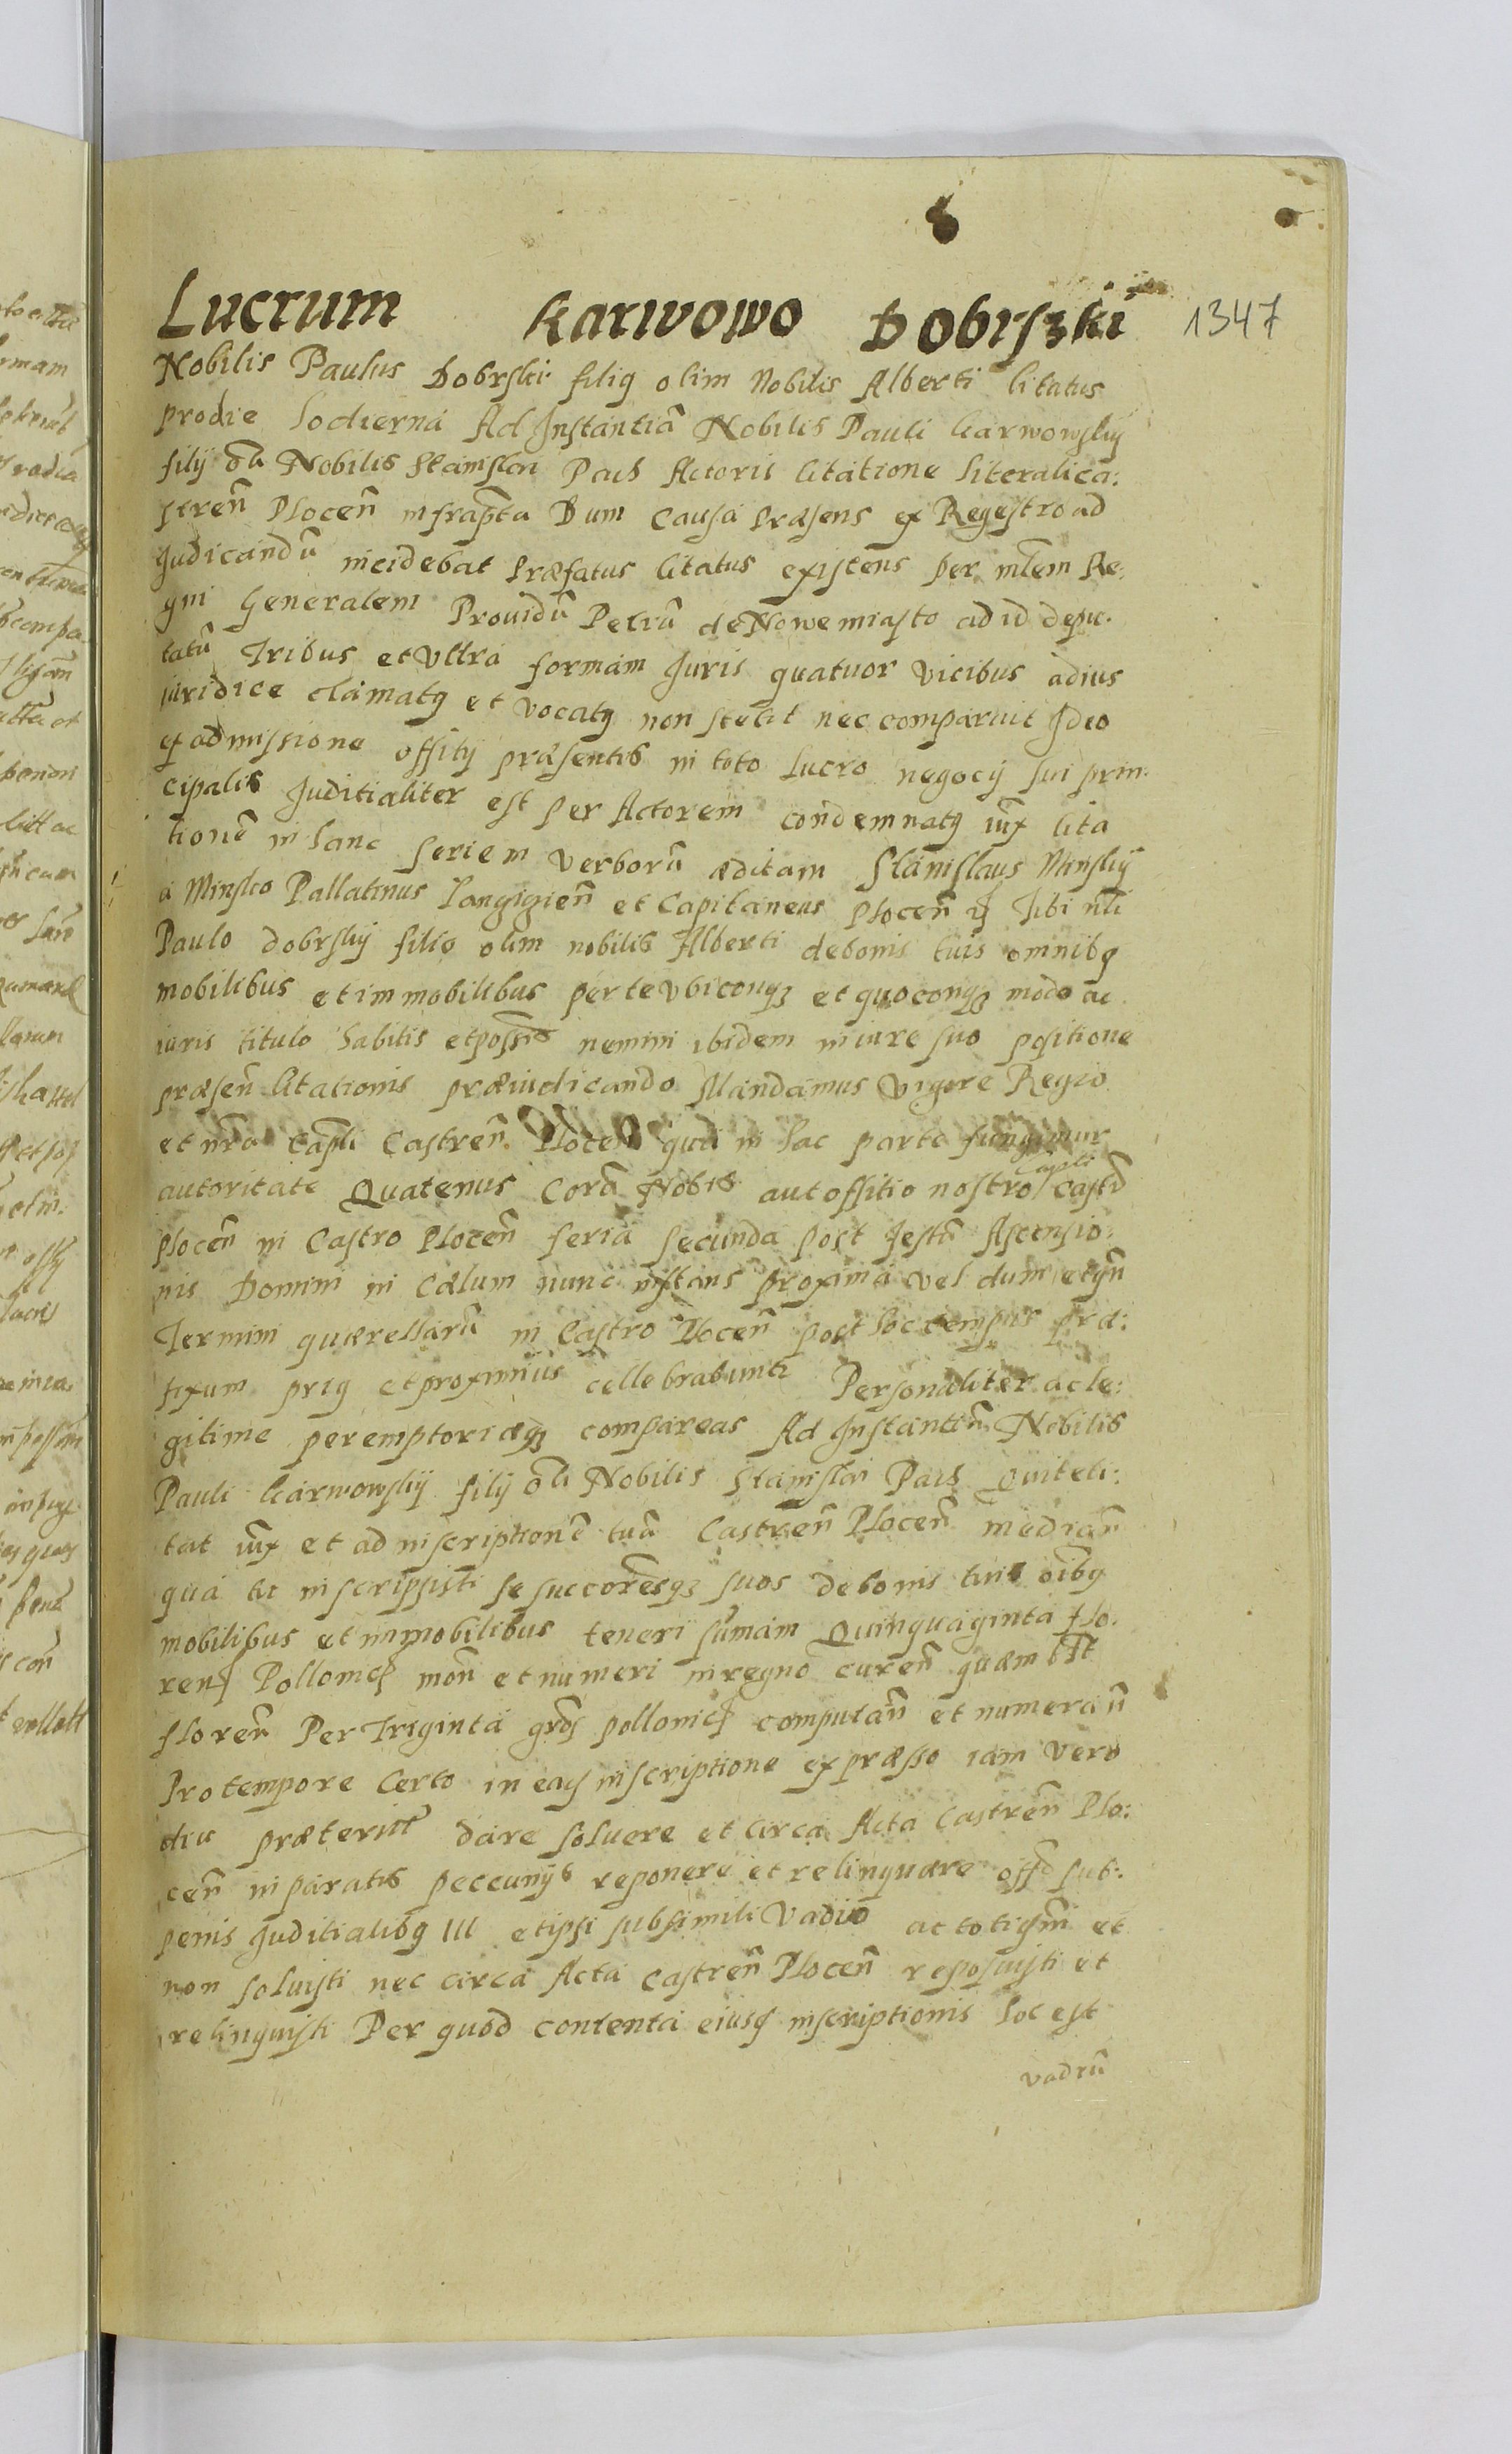 8
Lucrum Karwowo Dobrszki 1347
Nobilis Paulus Dobrski filiꝯ olim Nobilis Alberti Citatus
prodie hodierna Ad Instantiã Nobilis Pauli Karwowskij
filij õli Nobilis Stanislai Pacis Actoris Citatione literali ca:
stren̄ Plocen̄ infrascp̃ta Dum Causa Præsens ex Regestro ad
Judicandũ incidebat Præfatus Citatus existens per mlẽm Re:
gni Generalem Prouidũ Petrũ de Nowemiasto ad id depu:
tatũ Tribus et Vltra formam Juris quatuor vicibus ad ius
iuridice clamatꝯ et vocatꝯ non stetit nec comparuit Ideo
ex admissione offitij præsentis in toto lucro negocij sui prin:
cipalis Juditialiter est per Actorem condemnatꝯ iux̃ Cita
tionẽ in hanc seriem verborũ æditam Stanislaus Minskij
a Minsko Pallatinus Langigien̄ et Capitaneus Plocen̄ Tibi nl̃i
Paulo dobrskij filio olim nobilis Alberti de bonis tuis omnibꝯ
mobilibus et immobilibus per te vbiconqꝫ et quoconqꝫ modo ac
iuris titulo habitis et posss̃is nemini ibidem in iure suo positione
præsen̄ Citationis præiudicando Mandamus Vigore Regio
et nr̃a Capli Castren̄ Plocen̄ qua in hac parte fungimur
autoritate Quatenus Corã Nobis aut offitio nostro Capli Castr̃
plocen̄ in Castro Plocen̄ feria secunda post festũ Ascensio:
nis Domini in Cælum nunc instans proxima vel dum
Termini quærellarũ in Castro Plocen̄ post hoc tempus præ:
fixum priꝯ et proximius cellebrabunt̃ Personaliter ac le:
gitime peremptoriæqꝫ compareas Ad Instantiã Nobilis
Pauli Karwowskij filij õli Nobilis Stanislai Pacis Qui te ci:
tat iux̃ et ad inscriptionẽ tuã Castren̄ Plocen̄ median̄
qua tu inscripsisti se succoresqꝫ suos de bonis tuis oĩbꝯ
mobilibus et immobilibus teneri sum̃am Quinquaginta flo:
ren Pollonic mon̄ et numeri in regno curen̄ quæml̃t
floren̄ Per Triginta gros pollonic computan̄ et numeran̄
Pro tempore Certo in eads inscriptione expræsso iam vero
diu præterit̃ dare soluere et Circa Acta Castren̄ Plo:
cen̄ in paratis peccunijs reponere et relinquære sub:
penis Juditialibꝯ III et ipsi sub simili Vadio ac toti
non soluisti nec circa Acta Castren̄ Plocen̄ reposuisti et
relinquisti Per quod contenta eiusd inscriptionis hoc est
vadiũ